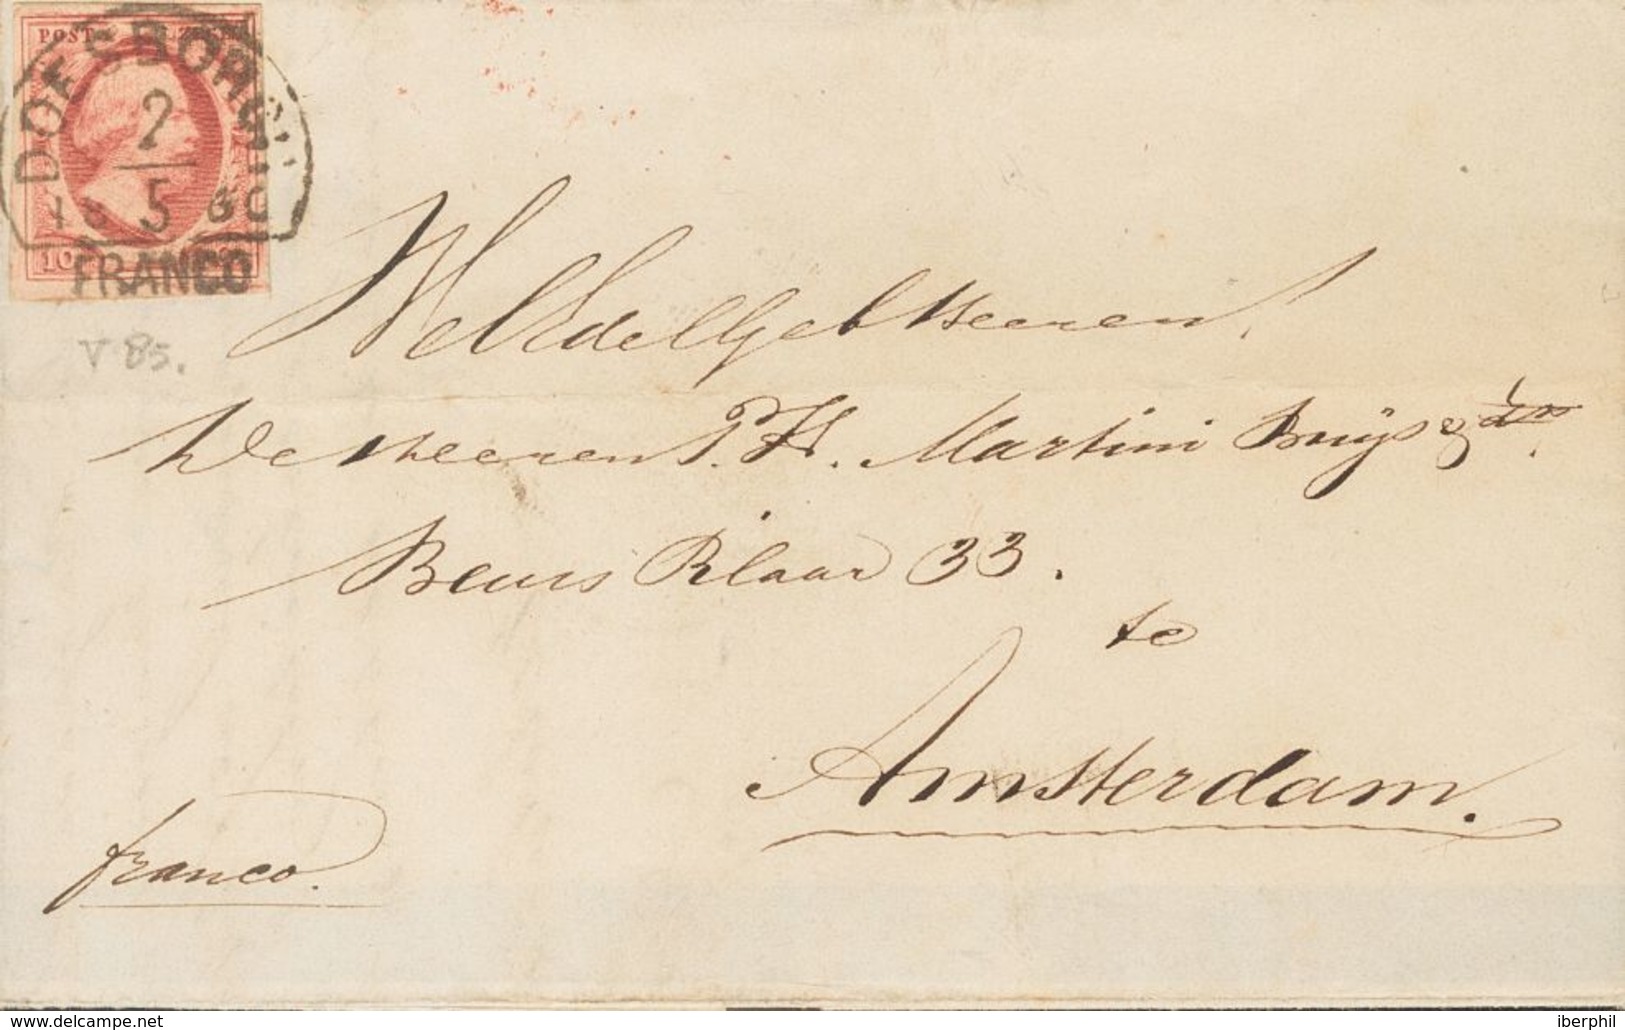 POSTZEGEL
DOESBORGH
2
5
1860
10
FRANCO
V 85.
WelEdelGeb Heeren,
De Heeren P. H. Martini Buijs & Zn.
Beurs Plaar 33.
te
Amsterdam.
franco.
delcampe.net
iberphil